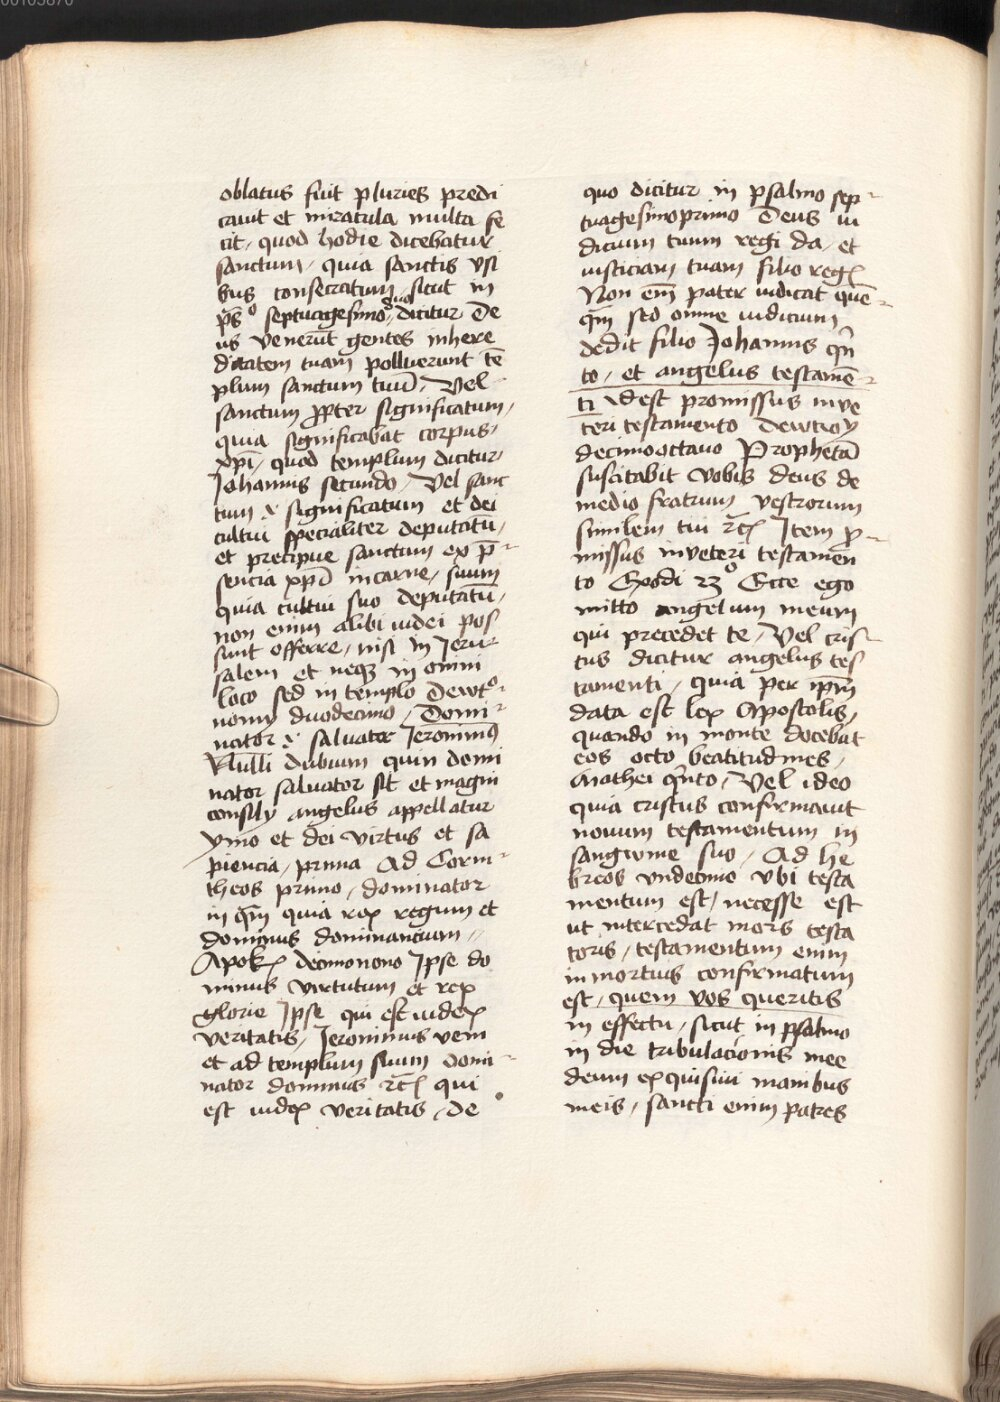 00105870
oblatus fuit pluries predi
cauit et miracula multa fe
cit, quod hodie dicebatur
sanctum, quia sanctis vsi
bus consecratum, sicut in
pꝰ septuagesimo octauo dicitur De
us venerūt gentes in here
ditatem tuam polluerunt tē
plum sanctum tuū, Vel
sanctum ꝓpter significatum,
quia significabat corpus,
xp̄i, quod templum dicitur,
Johannis secundo, Vel sanc
tum significatum et dei
cultui specialiter deputatū,
et precipue sanctum ex p̄-
sencia xp̄i in carne, suum
quia cultui suo deputatū,
non enim alibi iudei pos
sunt offerre, nisi in Jeru-
salem et neqꝫ in omni
loco sed in templo Dewtᵒ-
nomij duodecimo, Domi-
nator salvator Jeronimꝰ
Nulli dubium quin domi
nator saluator sit et magni
consilij angelus appellatur
ymo et dei virtus et sa
piencia, prima Ad Corin-
theos primo, dominator
in q̄m quia rex regum et
dominus dominancium,,
Apokꝭ decimonono Ipse do
minus virtutum et rex
glorie Ipse qui est iudex
veritatis, Jeronimus veni
et ad templum suum domi-
nator dominus rc̄ꝭ qui
est iudex veritatis, de
quo dicitur in psalmo sep-
tuagesimoprimo Deus iu
dicium tuum regi da, et
iusticiam tuam filio regꝭ
Non em̄ pater iudicat quē-
q̄m sed omne iudicium
dedit filio Johannis qn̄
to, et angelus testamē-
ti Idest promissus in ve
teri testamento dewtroꝰ
decimooctauo Prophetā
suscitabit vobis deus de
medio fratrum vestrorum
similem tui rc̄ꝭ Item ꝓ-
missus in veteri testamen
to Exodi 23° Ecce ego
mitto angelum meum
qui precedet te, Vel cris-
tus dicitur angelus tes
tamenti, quia per ip̄m
data est lex Apostolis,
quando in monte docebat
eos octo beatitudines,
Mathei qn̄to, Vel ideo
quia cristus confirmauit
nouum testamentum in
sangwine suo, Ad he
breos vndecimo vbi testa
mentum est, necesse est
ut intercedat mors testa
toris, testamentum enim
in mortuis confirmatum
est, quem vos queritis
in effectu, sicut in psalmo
in die tribulacionis mee
deum exquisiui manibus
meis, sancti enim patres